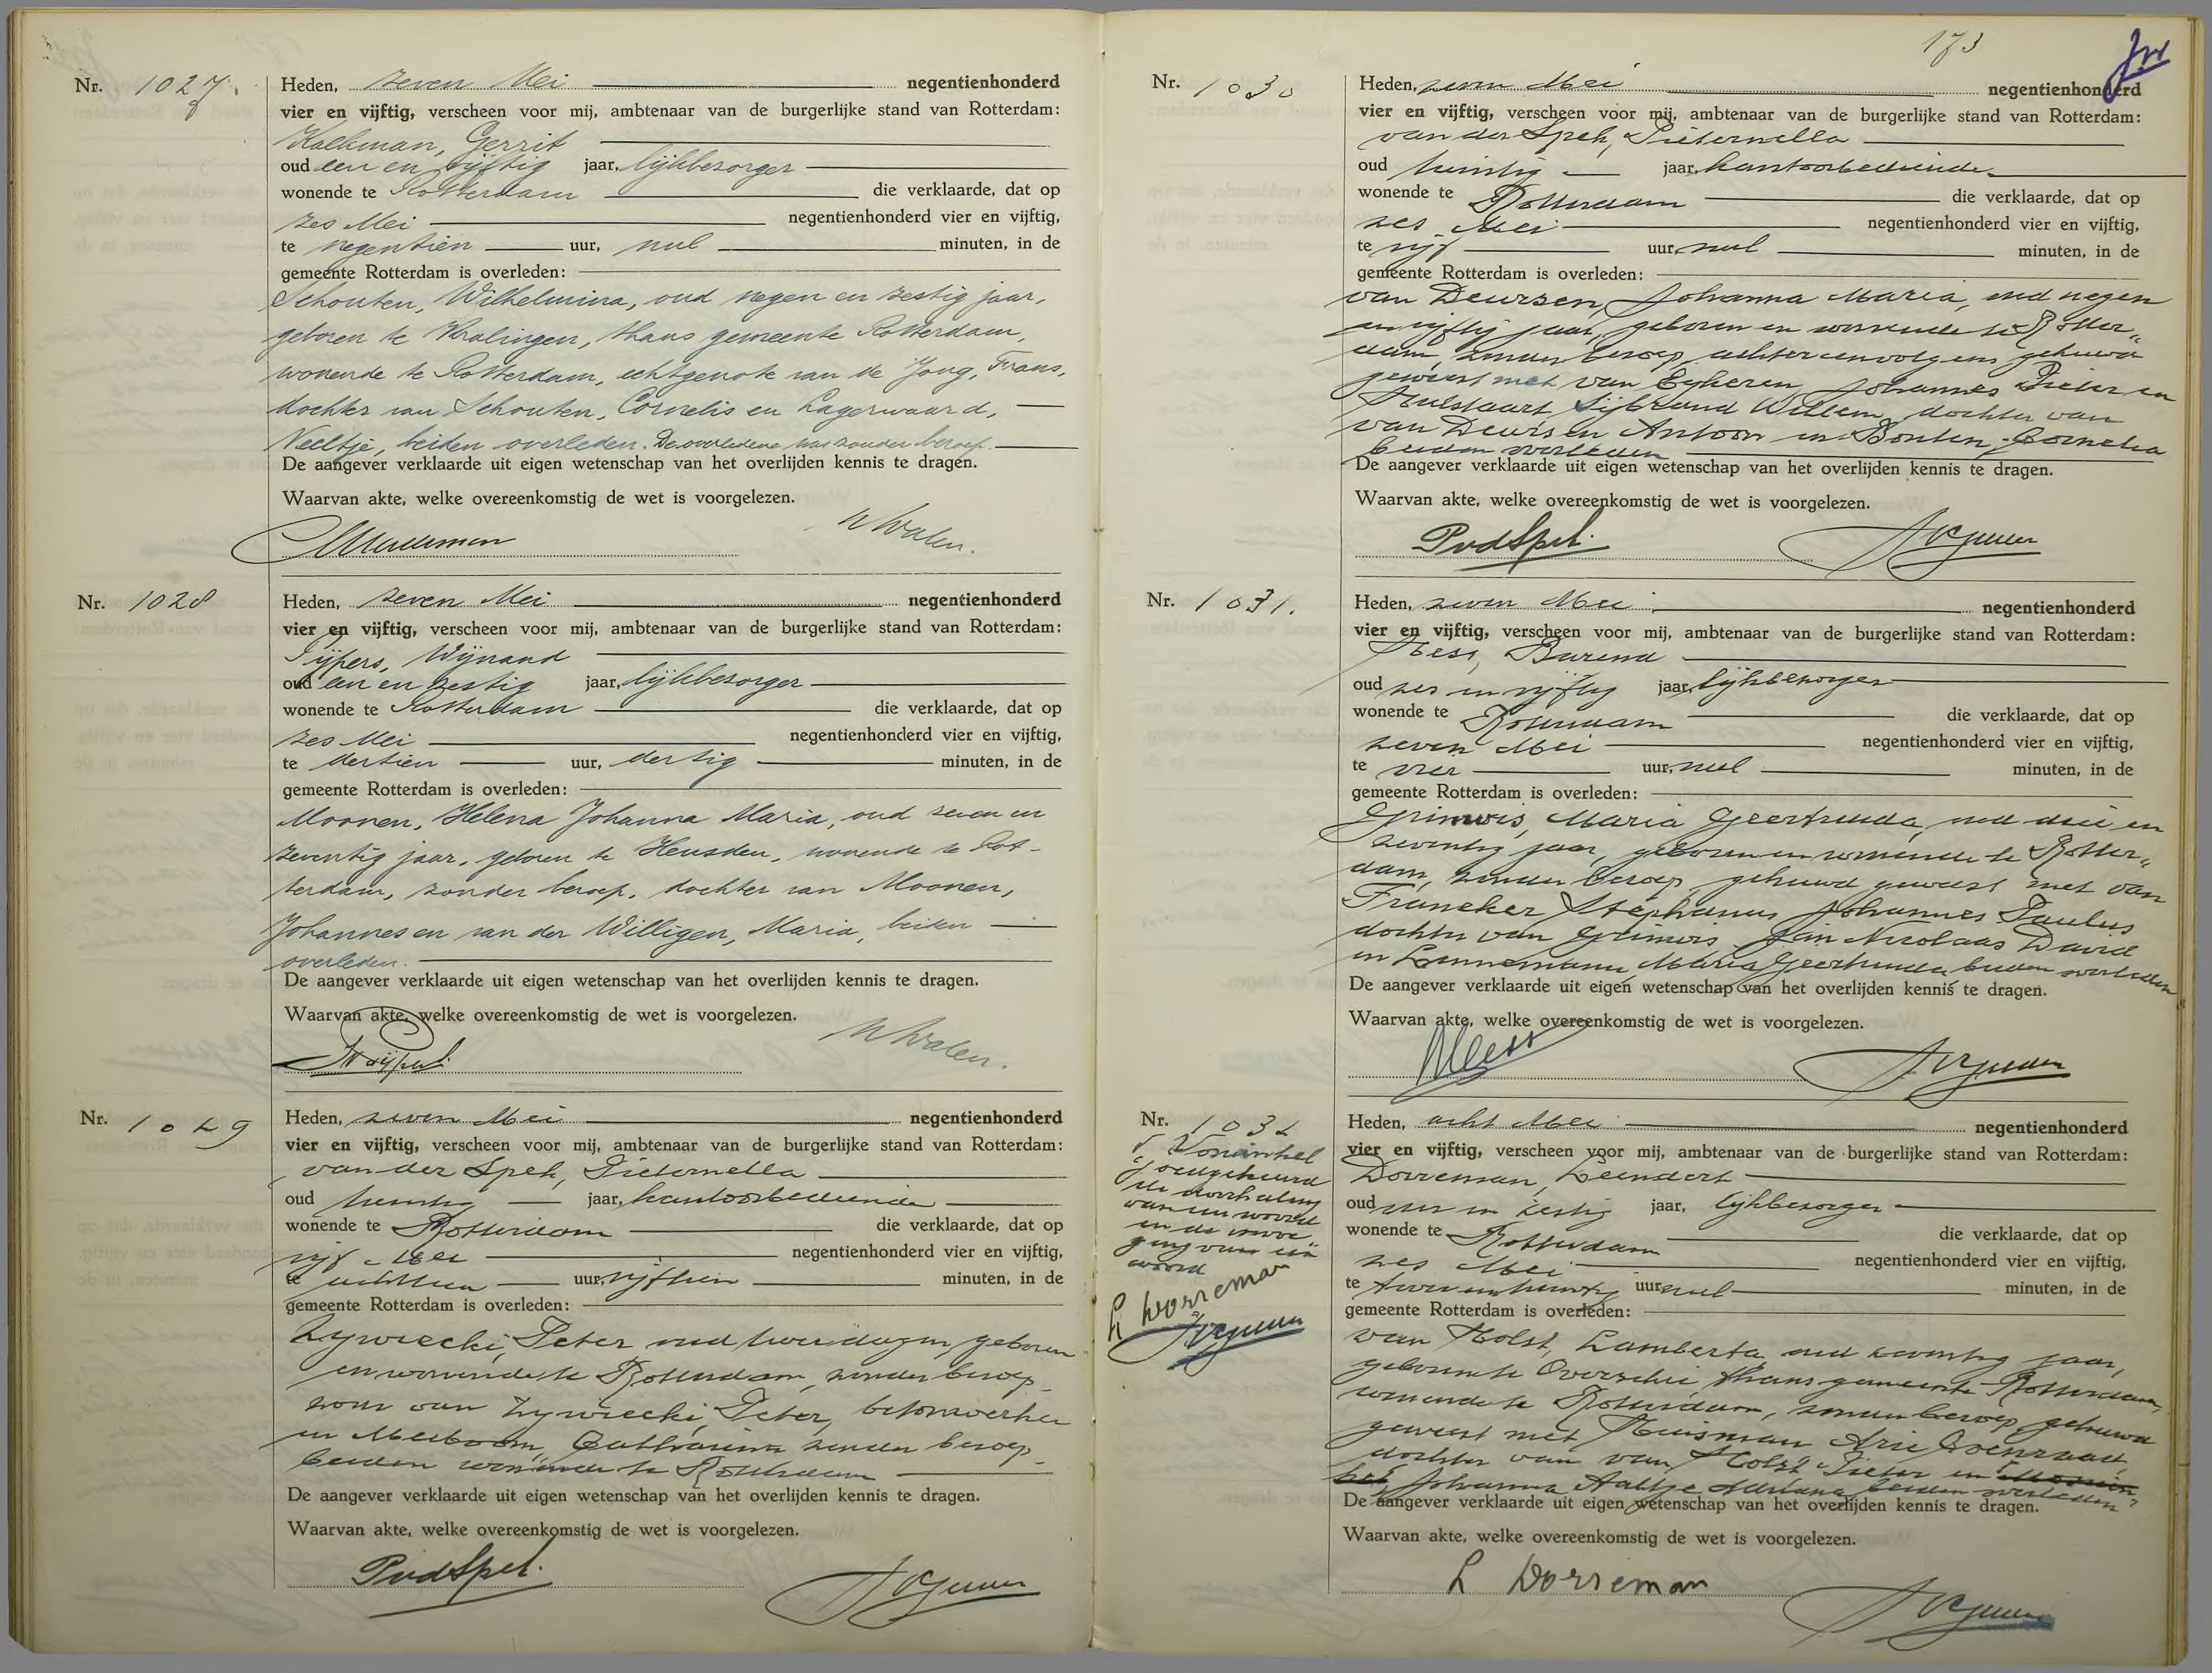 Nr. 1027.
Heden, zeven Mei negentienhonderd
vier en vijftig, verscheen voor mij, ambtenaar van de burgerlijke stand van Rotterdam:
Kalkman, Gerrit
oud een en vijftig jaar, lijkbezorger
wonende te Rotterdam die verklaarde, dat op
zes Mei negentienhonderd vier en vijftig,
te negentien uur, nul minuten, in de
gemeente Rotterdam is overleden:
Schouten, Wilhelmina, oud negen en zestig jaar,
geboren te Kralingen, thans gemeente Rotterdam,
wonende te Rotterdam, echtgenote van de Jong, Frans,
dochter van Schouten, Cornelis en Lagerwaard,
Neeltje, beiden overleden. De overledene was zonder beroep.
De aangever verklaarde uit eigen wetenschap van het overlijden kennis te dragen.
Waarvan akte, welke overeenkomstig de wet is voorgelezen.
Nr. 1028
Heden, zeven Mei negentienhonderd
vier en vijftig, verscheen voor mij, ambtenaar van de burgerlijke stand van Rotterdam:
Sijpers, Wijnand
oud een en zestig jaar, lijkbezorger
wonende te Rotterdam die verklaarde, dat op
zes Mei negentienhonderd vier en vijftig,
te dertien uur, dertig minuten, in de
gemeente Rotterdam is overleden:
Moonen, Helena Johanna Maria, oud zeven en
zeventig jaar, geboren te Heusden, wonende te Rot-
terdam, zonder beroep, dochter van Moonen,
Johannes en van der Willigen, Maria, beiden
overleden.
De aangever verklaarde uit eigen wetenschap van het overlijden kennis te dragen.
Waarvan akte, welke overeenkomstig de wet is voorgelezen.
Nr. 1029
Heden, zeven Mei negentienhonderd
vier en vijftig, verscheen voor mij, ambtenaar van de burgerlijke stand van Rotterdam:
van der Spek, Pieternella
oud twintig jaar, kantoorbediende
wonende te Rotterdam die verklaarde, dat op
vijf Mei negentienhonderd vier en vijftig,
te achttien uur, vijftien minuten, in de
gemeente Rotterdam is overleden:
Zywiecki, Peter oud twee dagen, geboren
en wonende te Rotterdam, zonder beroep
zoon van Zywiecki, Peter, betonwerker
en Meeboom, Catharina zonder beroep
beiden wonende te Rotterdam
De aangever verklaarde uit eigen wetenschap van het overlijden kennis te dragen.
Waarvan akte, welke overeenkomstig de wet is voorgelezen.
PvdSpek.
173
Nr. 1030
Heden, zeven Mei negentienhonderd
vier en vijftig, verscheen voor mij, ambtenaar van de burgerlijke stand van Rotterdam:
van der Spek, Pieternella
oud twintig jaar, kantoorbediende
wonende te Rotterdam die verklaarde, dat op
zes Mei negentienhonderd vier en vijftig,
te vijf uur, nul minuten, in de
gemeente Rotterdam is overleden:
van Deursen, Johanna Maria, oud negen
en vijftig jaar, geboren en wonende te Rotter-
dam, zonder beroep, achtereenvolgens gehuwd
geweest met van Eykeren, Johannes Pieter en
Hulstaart Sijbrand Willem, dochter van
van Deursen Antoon en Bonten, Cornelia
beiden overleden
De aangever verklaarde uit eigen wetenschap van het overlijden kennis te dragen.
Waarvan akte, welke overeenkomstig de wet is voorgelezen.
PvdSpek.
Nr. 1031.
Heden, zeven Mei negentienhonderd
vier en vijftig, verscheen voor mij, ambtenaar van de burgerlijke stand van Rotterdam:
Hess, Barend
oud zes en vijftig jaar, lijkbezorger
wonende te Rotterdam die verklaarde, dat op
zeven Mei negentienhonderd vier en vijftig,
te vier uur, nul minuten, in de
gemeente Rotterdam is overleden:
Grimwis, Maria Geertruida, oud drie en
zeventig jaar, geboren en wonende te Rotter-
dam, zonder beroep, gehuwd geweest met van
Franeker Stephanus Johannes Paulus
dochter van Grimwis Jan Nicolaas David
en Lennemann, Maria Geertruida beiden overleden
De aangever verklaarde uit eigen wetenschap van het overlijden kennis te dragen.
Waarvan akte, welke overeenkomstig de wet is voorgelezen.
Nr. 1032
Goedgekeurd
de doorhaling
van een woord
en de invoe
ging van één
woord
L Dorreman
Heden, acht Mei negentienhonderd
vier en vijftig, verscheen voor mij, ambtenaar van de burgerlijke stand van Rotterdam:
Dorreman, Leendert
oud en zestig jaar, lijkbezorger
wonende te Rotterdam die verklaarde, dat op
zes Mei negentienhonderd vier en vijftig,
te twee en twintig uur, nul minuten, in de
gemeente Rotterdam is overleden:
van Holst, Lamberta oud zeventig jaar,
geboren te Overschie thans gemeente Rotterdam,
wonende te Rotterdam, zonder beroep gehuwd
geweest met Huisman Arie Coenraad
dochter van van Holst Pieter en
Johanna Aaltje Adriana beiden overleden
De aangever verklaarde uit eigen wetenschap van het overlijden kennis te dragen.
Waarvan akte, welke overeenkomstig de wet is voorgelezen.
L Dorreman